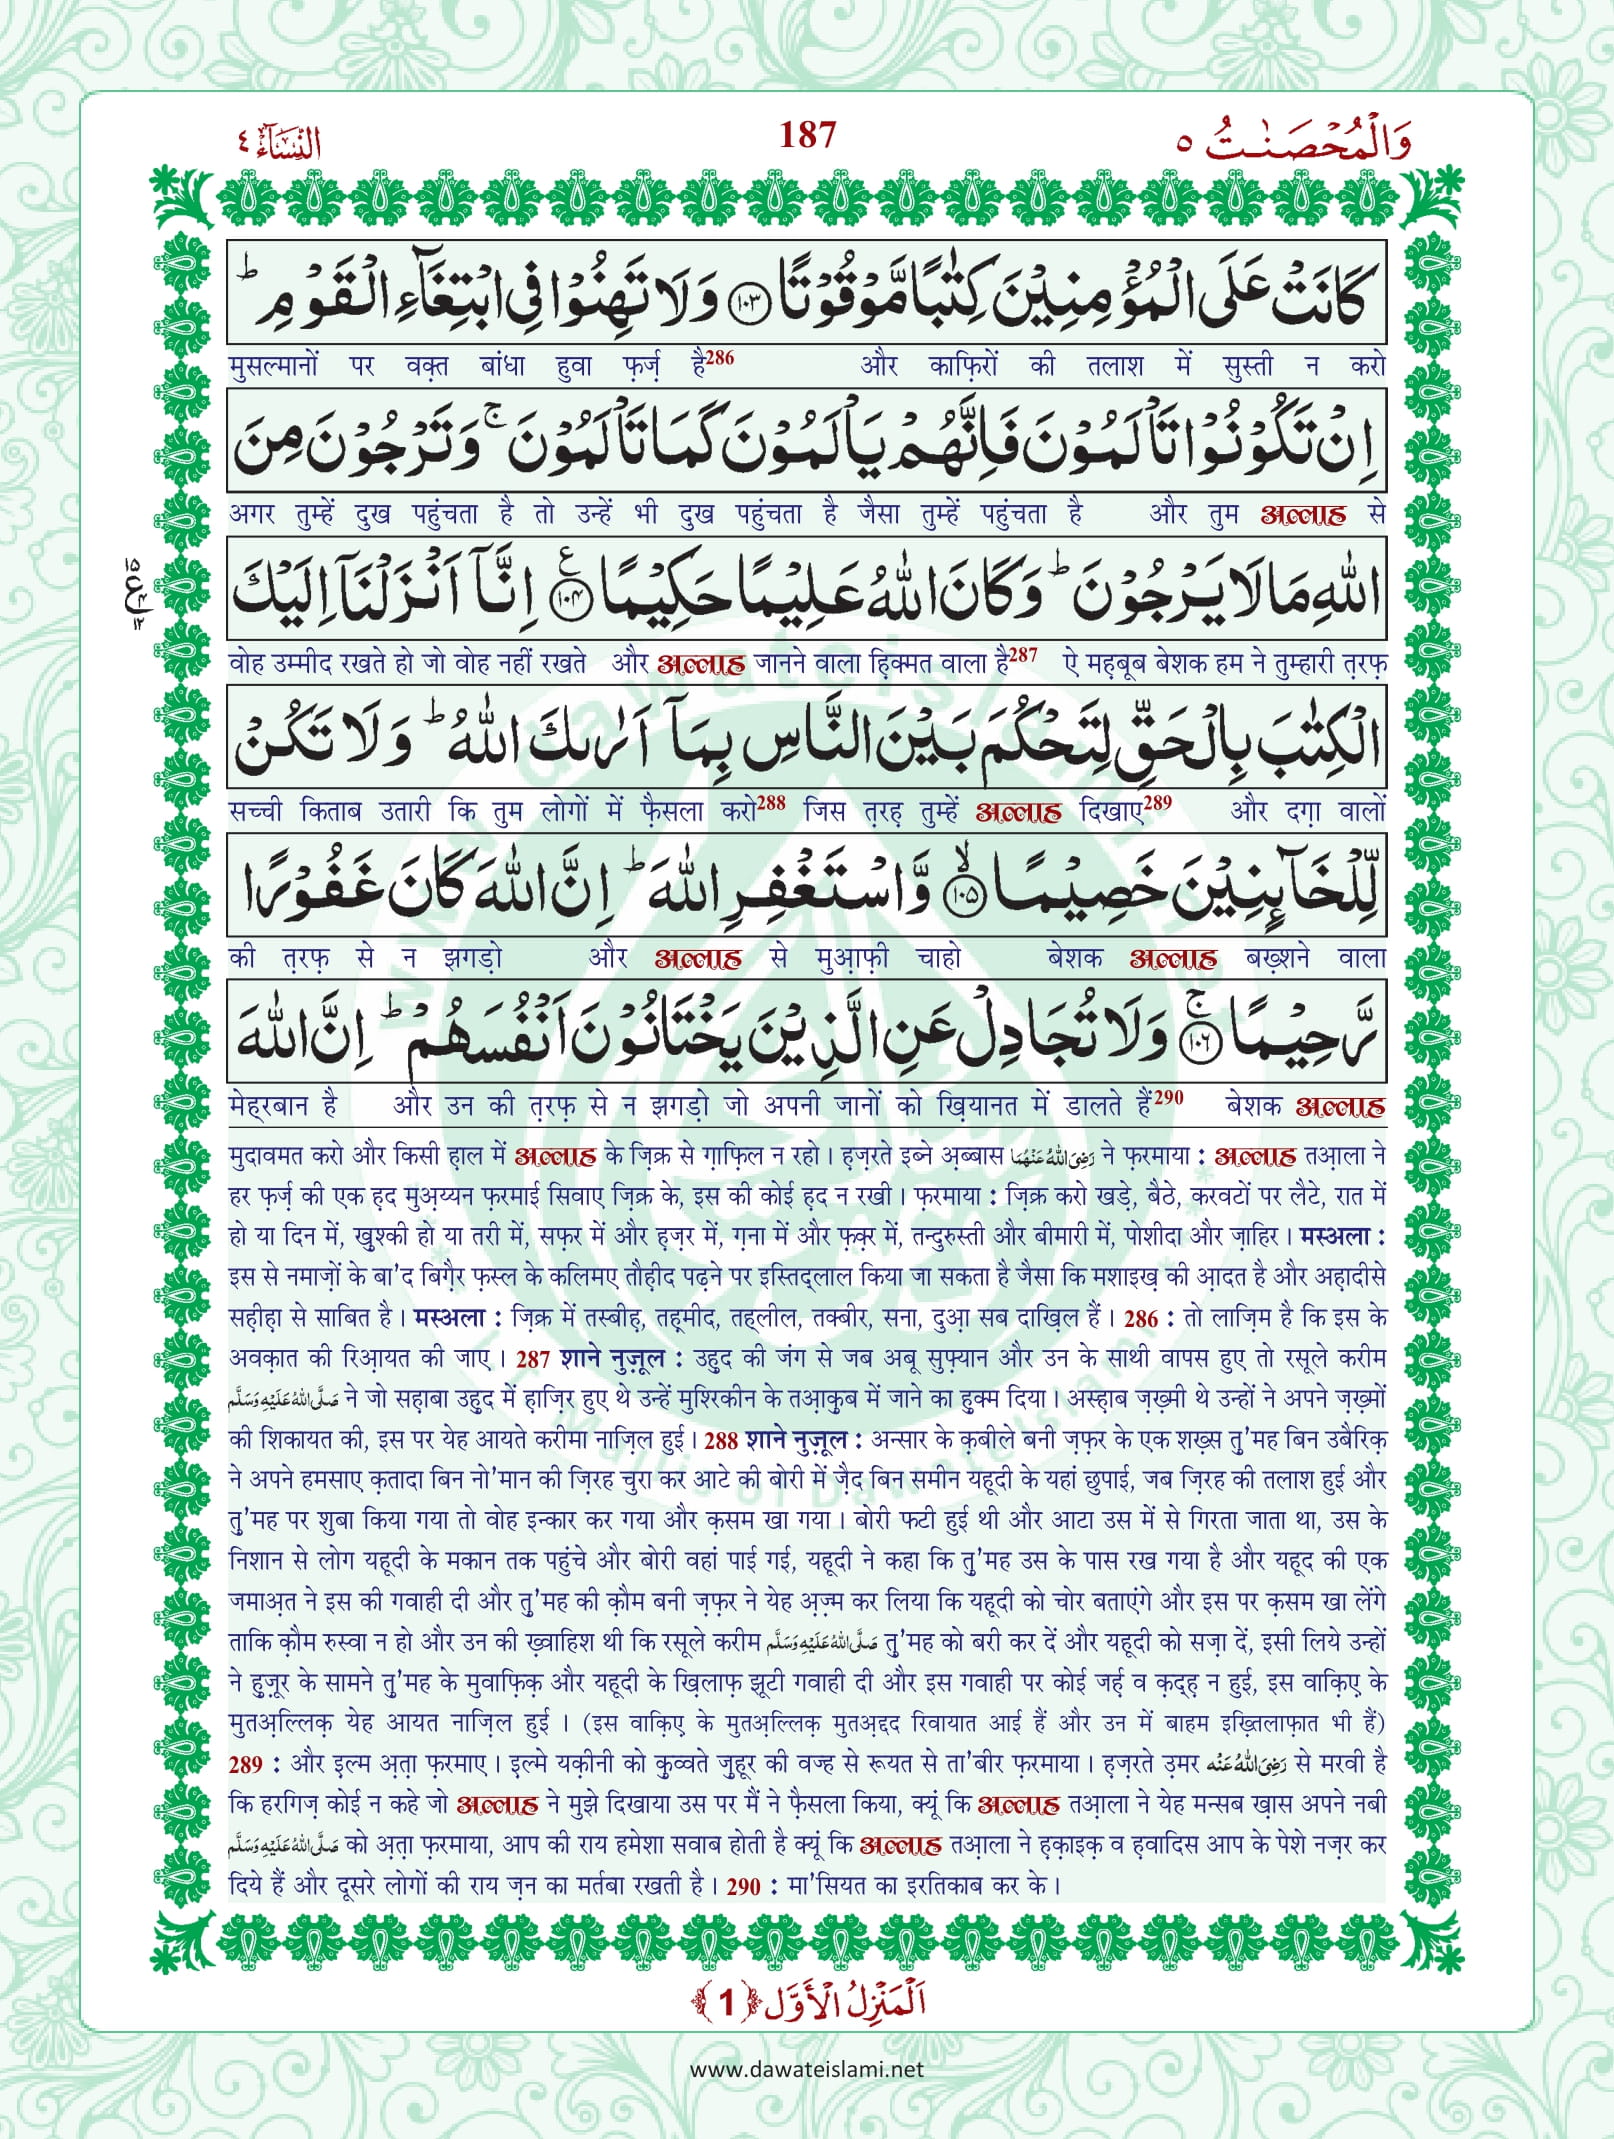 وَالْمُحْصَنٰتُ ٥
187
النِّسَآء ٤
كَانَتْ عَلَى الْمُؤْمِنِيْنَ كِتٰبًا مَّوْقُوْتًا ﴿١٠٣﴾ وَلَا تَهِنُوْا فِى ابْتِغَآءِ الْقَوْمِ ؕ
मुसल्मानों पर वक़्त बांधा हुवा फ़र्ज़ है286 और काफ़िरों की तलाश में सुस्ती न करो
اِنْ تَكُوْنُوْا تَاْلَمُوْنَ فَاِنَّهُمْ يَاْلَمُوْنَ كَمَا تَاْلَمُوْنَ ۚ وَتَرْجُوْنَ مِنَ
अगर तुम्हें दुख पहुंचता है तो उन्हें भी दुख पहुंचता है जैसा तुम्हें पहुंचता है और तुम अल्लाह से
اللّٰهِ مَا لَا يَرْجُوْنَ ؕ وَكَانَ اللّٰهُ عَلِيْمًا حَكِيْمًا ﴿١٠٤﴾ ع اِنَّاۤ اَنْزَلْنَاۤ اِلَيْكَ
١٥ ع ٤ ١٢
वोह उम्मीद रखते हो जो वोह नहीं रखते और अल्लाह जानने वाला ह़िक्मत वाला है287 ऐ मह़बूब बेशक हम ने तुम्हारी त़रफ़
الْكِتٰبَ بِالْحَقِّ لِتَحْكُمَ بَيْنَ النَّاسِ بِمَاۤ اَرٰىكَ اللّٰهُ ؕ وَلَا تَكُنْ
सच्ची किताब उतारी कि तुम लोगों में फ़ैसला करो288 जिस त़रह़ तुम्हें अल्लाह दिखाए289 और दग़ा वालों
لِّلْخَآىِٕنِيْنَ خَصِيْمًا ﴿١٠٥﴾ۙ وَّاسْتَغْفِرِ اللّٰهَ ؕ اِنَّ اللّٰهَ كَانَ غَفُوْرًا
की त़रफ़ से न झगड़ो और अल्लाह से मुआ़फ़ी चाहो बेशक अल्लाह बख़्शने वाला
رَّحِيْمًا ﴿١٠٦﴾ۚ وَلَا تُجَادِلْ عَنِ الَّذِيْنَ يَخْتَانُوْنَ اَنْفُسَهُمْ ؕ اِنَّ اللّٰهَ
मेह्रबान है और उन की त़रफ़ से न झगड़ो जो अपनी जानों को ख़ियानत में डालते हैं290 बेशक अल्लाह
मुदावमत करो और किसी ह़ाल में अल्लाह के ज़िक्र से ग़ाफ़िल न रहो। ह़ज़रते इब्ने अ़ब्बास رَضِىَ اللّٰهُ عَنْهُمَا ने फ़रमाया : अल्लाह तआ़ला ने
हर फ़र्ज़ की एक ह़द मुअ़य्यन फ़रमाई सिवाए ज़िक्र के, इस की कोई ह़द न रखी। फ़रमाया : ज़िक्र करो खड़े, बैठे, करवटों पर लैटे, रात में
हो या दिन में, ख़ुश्की हो या तरी में, सफ़र में और ह़ज़र में, ग़ना में और फ़क़्र में, तन्दुरुस्ती और बीमारी में, पोशीदा और ज़ाहिर। मस्अला :
इस से नमाज़ों के बा'द बिग़ैर फ़स्ल के कलिमए तौह़ीद पढ़ने पर इस्तिद्लाल किया जा सकता है जैसा कि मशाइख़ की आ़दत है और अह़ादीसे
सह़ीह़ा से साबित है। मस्अला : ज़िक्र में तस्बीह़, तह़मीद, तह्लील, तक्बीर, सना, दुआ़ सब दाख़िल हैं। 286 : तो लाज़िम है कि इस के
अवक़ात की रिआ़यत की जाए। 287 शाने नुज़ूल : उहुद की जंग से जब अबू सुफ़्यान और उन के साथी वापस हुए तो रसूले करीम
صَلَّى اللّٰهُ عَلَيْهِ وَسَلَّم ने जो सह़ाबा उहुद में ह़ाज़िर हुए थे उन्हें मुश्रिकीन के तआ़क़ुब में जाने का हुक्म दिया। अस्ह़ाब ज़ख़्मी थे उन्हों ने अपने ज़ख़्मों
की शिकायत की, इस पर येह आयते करीमा नाज़िल हुई। 288 शाने नुज़ूल : अन्सार के क़बीले बनी ज़फ़र के एक शख़्स तु'मह बिन उबैरिक़
ने अपने हमसाए क़तादा बिन नो'मान की ज़िरह चुरा कर आटे की बोरी में ज़ैद बिन समीन यहूदी के यहां छुपाई, जब ज़िरह की तलाश हुई और
तु'मह पर शुबा किया गया तो वोह इन्कार कर गया और क़सम खा गया। बोरी फटी हुई थी और आटा उस में से गिरता जाता था, उस के
निशान से लोग यहूदी के मकान तक पहुंचे और बोरी वहां पाई गई, यहूदी ने कहा कि तु'मह उस के पास रख गया है और यहूद की एक
जमाअ़त ने इस की गवाही दी और तु'मह की क़ौम बनी ज़फ़र ने येह अ़ज़्म कर लिया कि यहूदी को चोर बताएंगे और इस पर क़सम खा लेंगे
ताकि क़ौम रुस्वा न हो और उन की ख़्वाहिश थी कि रसूले करीम صَلَّى اللّٰهُ عَلَيْهِ وَسَلَّم तु'मह को बरी कर दें और यहूदी को सज़ा दें, इसी लिये उन्हों
ने हुज़ूर के सामने तु'मह के मुवाफ़िक़ और यहूदी के ख़िलाफ़ झूटी गवाही दी और इस गवाही पर कोई जर्ह़ व क़द्ह़ न हुई, इस वाक़िए़ के
मुतअ़ल्लिक़ येह आयत नाज़िल हुई। (इस वाक़िए़ के मुतअ़ल्लिक़ मुतअ़द्दद रिवायात आई हैं और उन में बाहम इख़्तिलाफ़ात भी हैं)
289 : और इल्म अ़त़ा फ़रमाए। इल्मे यक़ीनी को क़ुव्वते ज़ुहूर की वज्ह से रूयत से ता'बीर फ़रमाया। ह़ज़रते उ़मर رَضِىَ اللّٰهُ عَنْه से मरवी है
कि हरगिज़ कोई न कहे जो अल्लाह ने मुझे दिखाया उस पर मैं ने फ़ैसला किया, क्यूं कि अल्लाह तआ़ला ने येह मन्सब ख़ास अपने नबी
صَلَّى اللّٰهُ عَلَيْهِ وَسَلَّم को अ़त़ा फ़रमाया, आप की राय हमेशा सवाब होती है क्यूं कि अल्लाह तआ़ला ने ह़क़ाइक़ व ह़वादिस आप के पेशे नज़र कर
दिये हैं और दूसरे लोगों की राय ज़न का मर्तबा रखती है। 290 : मा'सियत का इरतिकाब कर के।
اَلْمَنْزِلُ الْاَوَّل ﴿1﴾
www.dawateislami.net